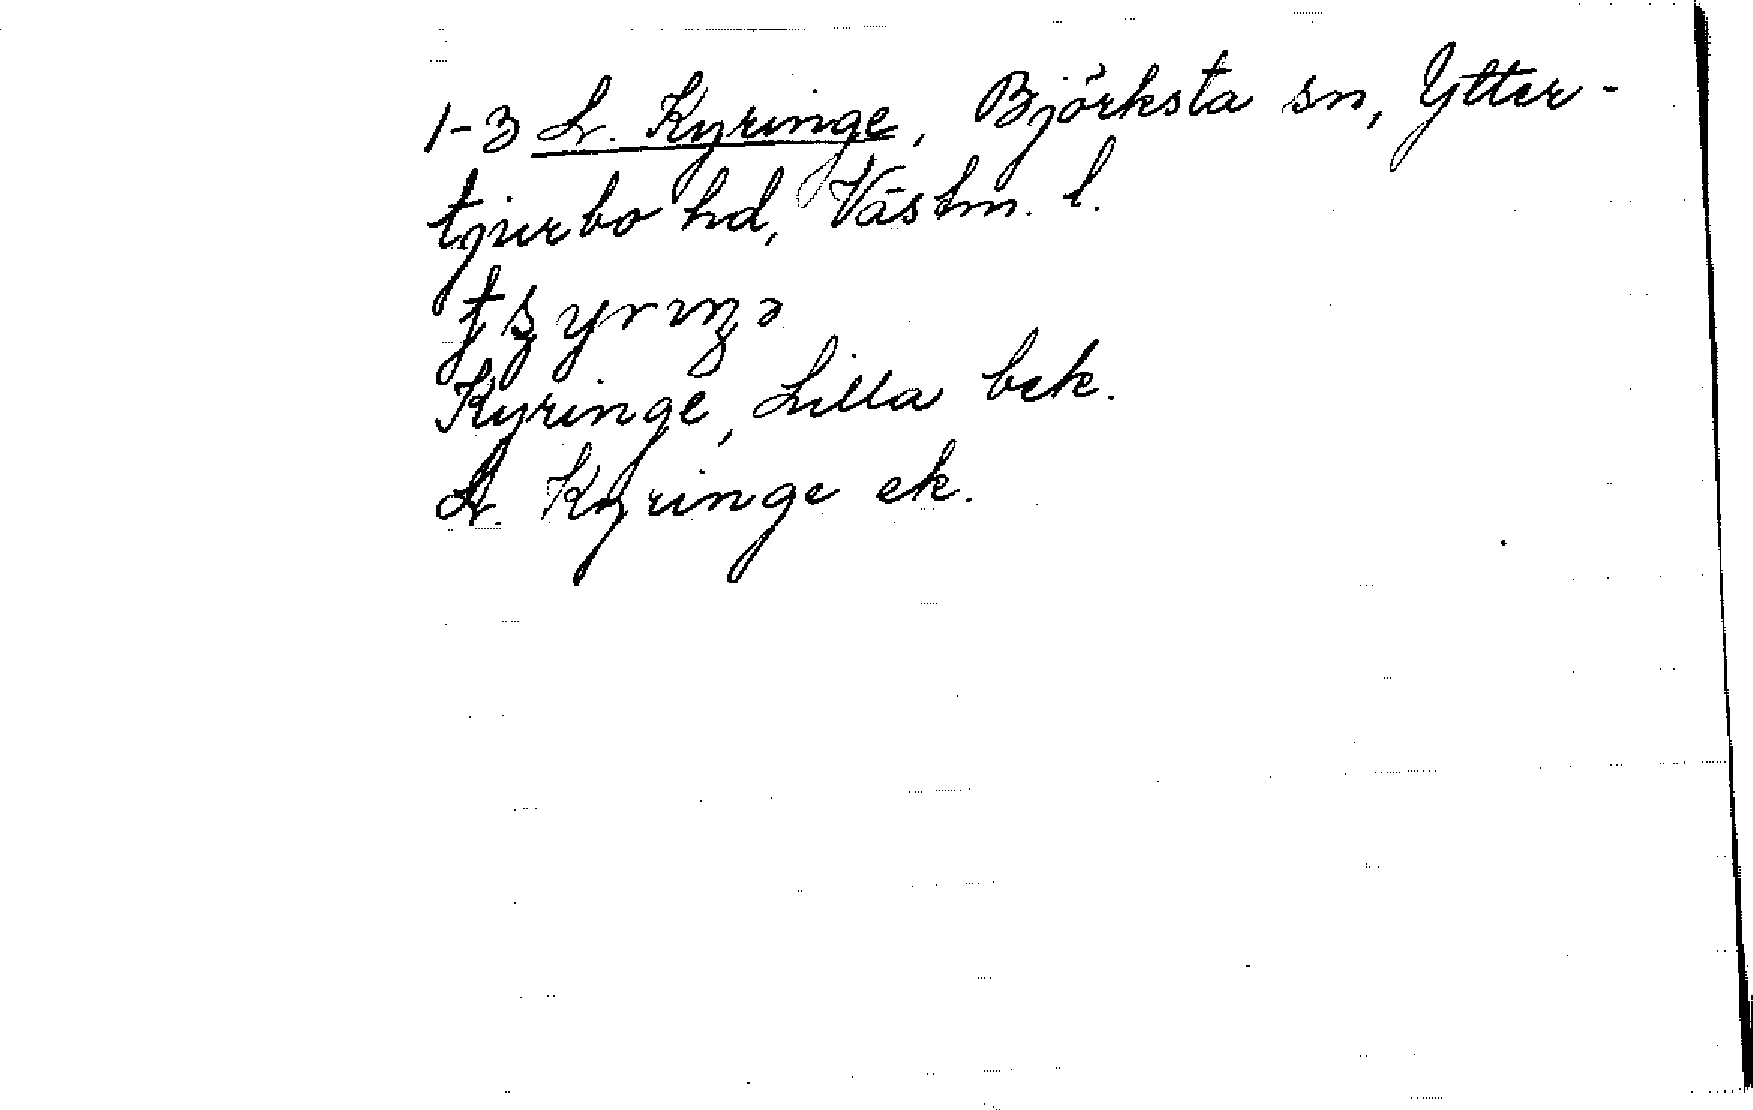 1-3 L. Kyringe, Björksta sn, Ytter-
tjurbo hd, Västm. l.
Kyringe, Lilla bek.
L. Kyringe ek.